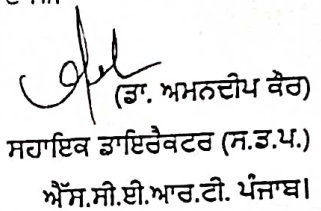 (ਡਾ. ਅਮਨਦੀਪ ਕੌਰ)
ਸਹਾਇਕ ਡਾਇਰੈਕਟਰ (ਸ.ਡ.ਪ.)
ਐੱਸ.ਸੀ.ਈ.ਆਰ.ਟੀ. ਪੰਜਾਬ।